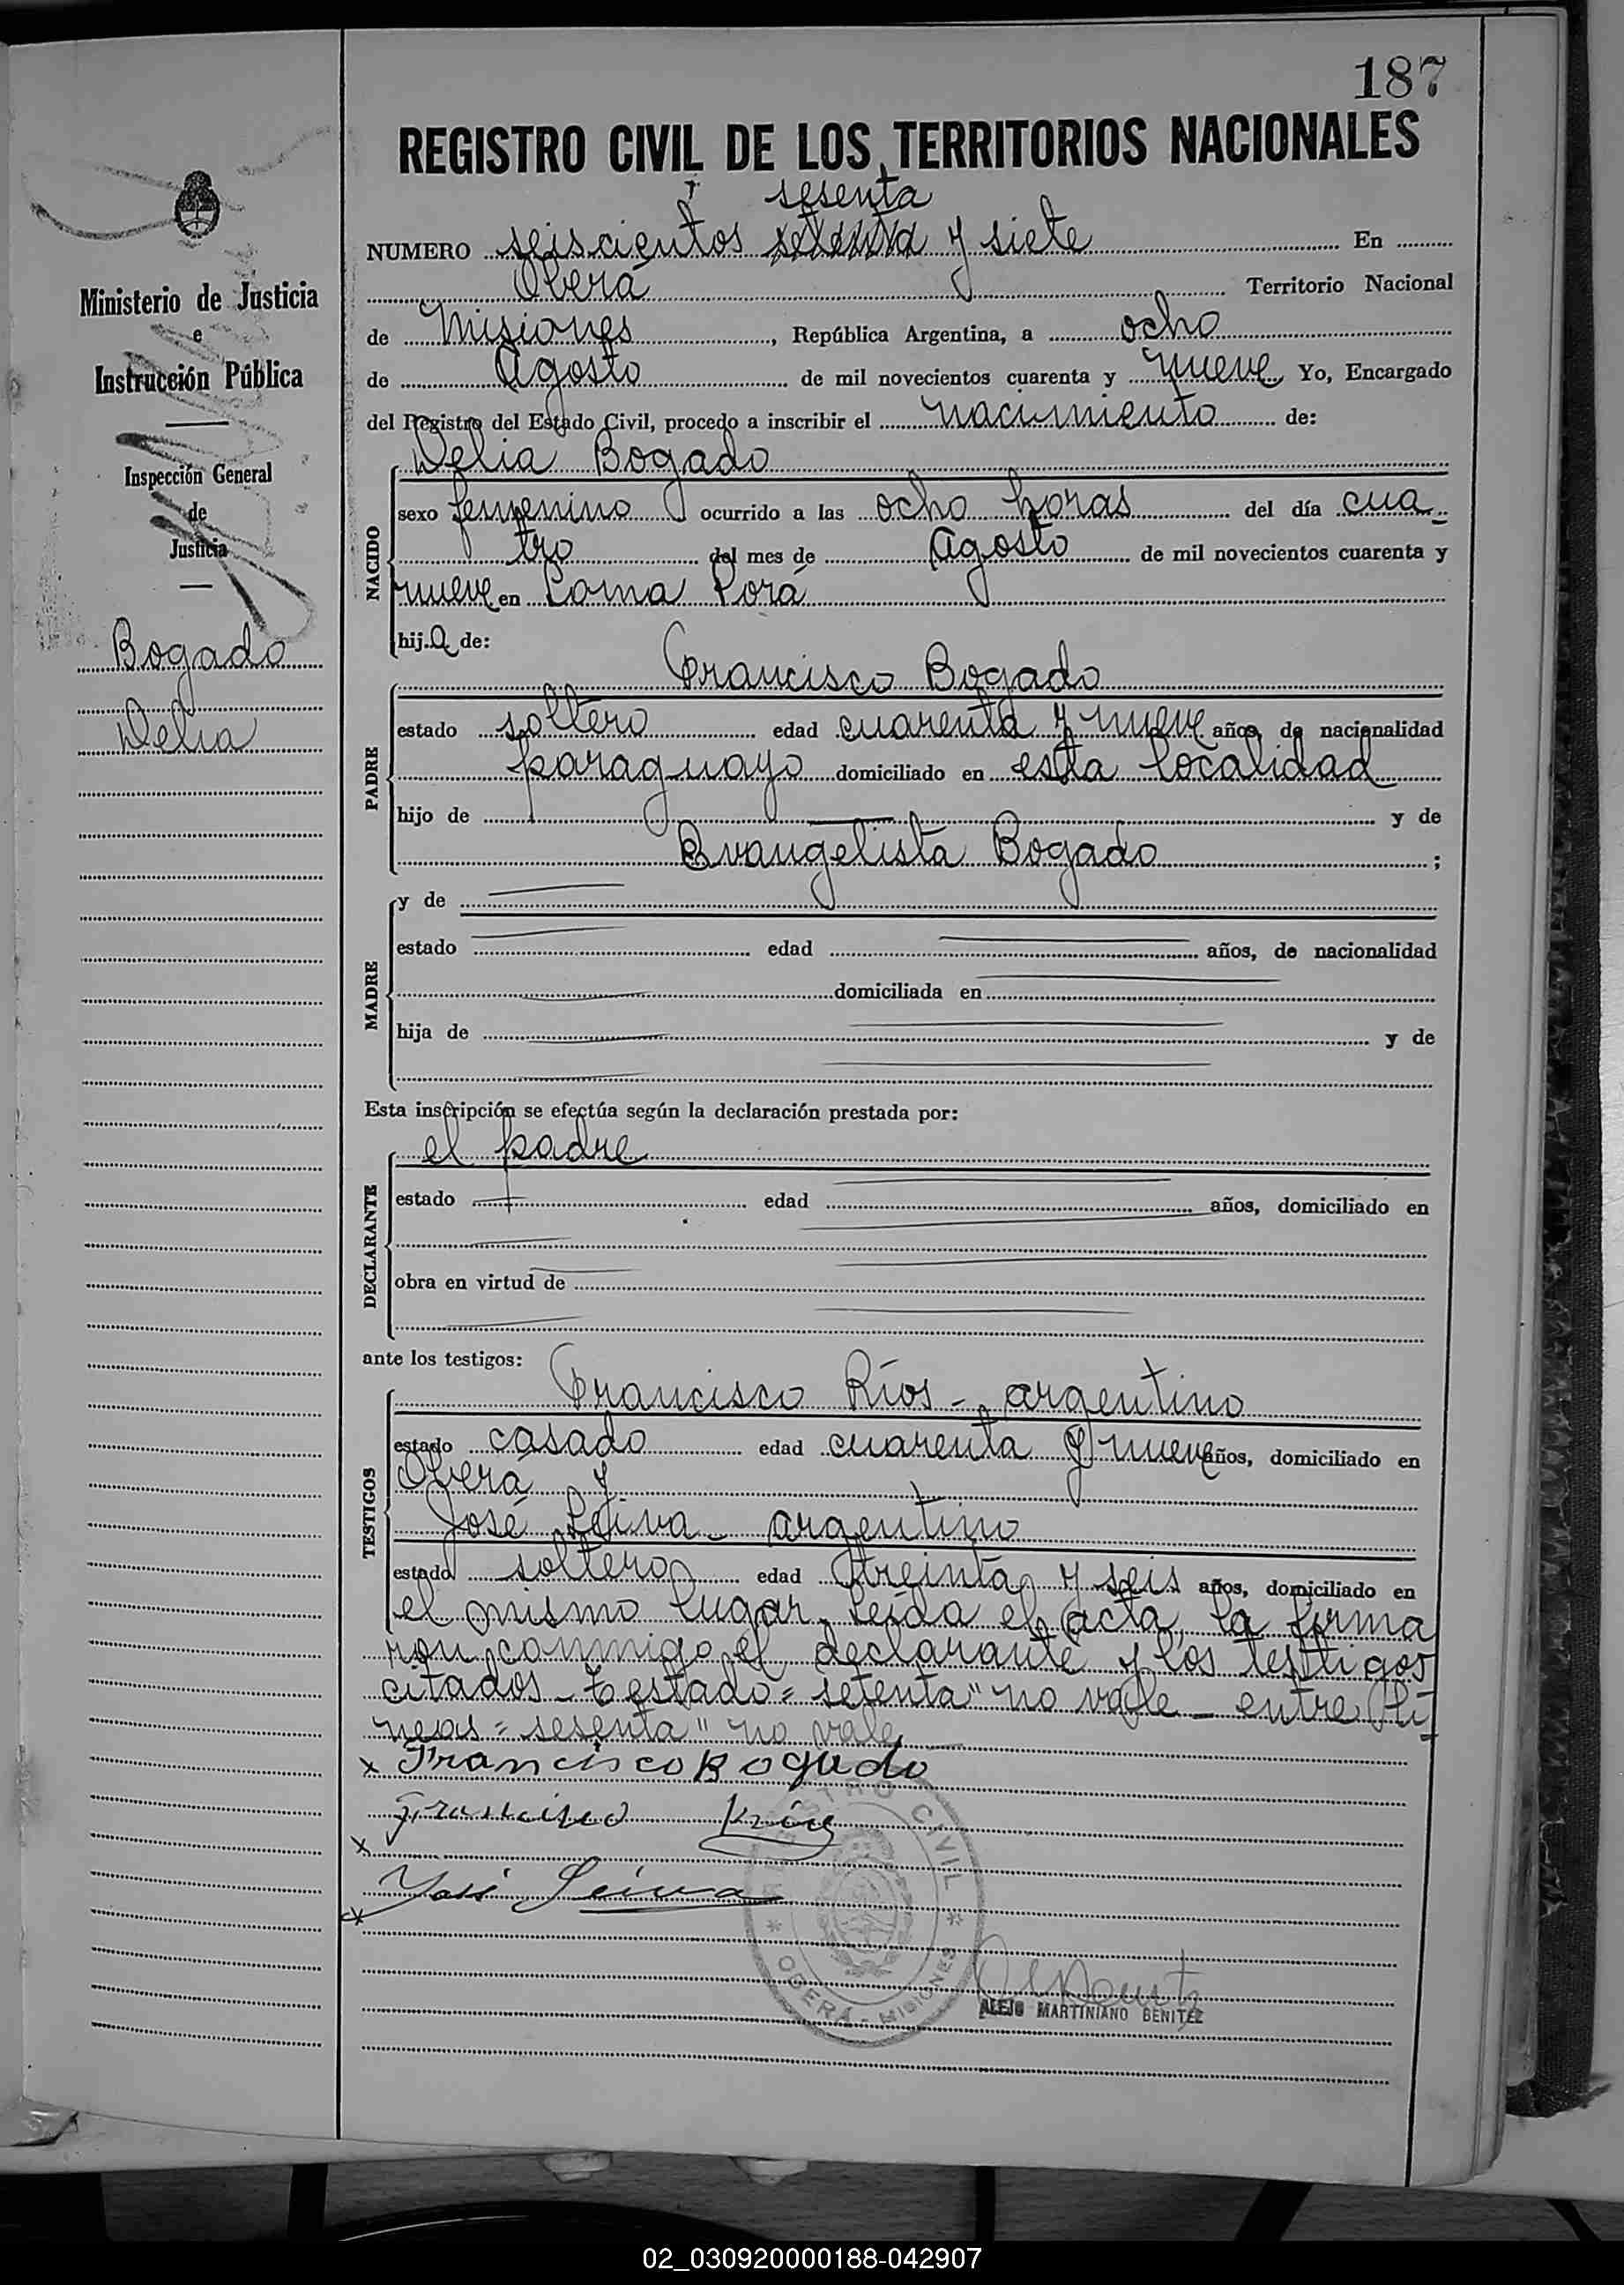 187
REGISTRO CIVIL DE LOS TERRITORIOS NACIONALES
sesenta
NUMERO seiscientos setenta y siete En
Oberá Territorio Nacional
de Misiones, República Argentina, a ocho
de Agosto de mil novecientos cuarenta y nueve Yo, Encargado
del Registro del Estado Civil, procedo a inscribir el nacimiento de:
Delia Bogado
NACIDO
sexo femenino ocurrido a las ocho horas del día cua-
tro del mes de Agosto de mil novecientos cuarenta y
nueve en Loma Porá
hija de:
Francisco Bogado
PADRE
estado soltero edad cuarenta y nueve años, de nacionalidad
paraguayo domiciliado en esta localidad
hijo de y de
Evangelista Bogado ;
MADRE
y de
estado edad años, de nacionalidad
domiciliada en
hija de y de
Esta inscripción se efectúa según la declaración prestada por:
DECLARANTE
el padre
estado edad años, domiciliado en
obra en virtud de
ante los testigos:
TESTIGOS
Francisco Ríos - argentino
estado casado edad cuarenta y nueve años, domiciliado en
Oberá y
José Leiva - argentino
estado soltero edad treinta y seis años, domiciliado en
el mismo lugar. Leída el acta, la firma
ron conmigo el declarante y los testigos
citados - Testado = setenta" no vale - entre lí-
neas = sesenta" no vale
x Francisco Bogado
Francisco Ríos
x
José Leiva
x
REGISTRO CIVIL
* OBERÁ - MISIONES *
ALEJO MARTINIANO BENITEZ
Ministerio de Justicia
e
Instrucción Pública
Inspección General
de
Justicia
Bogado
Delia
02_030920000188-042907